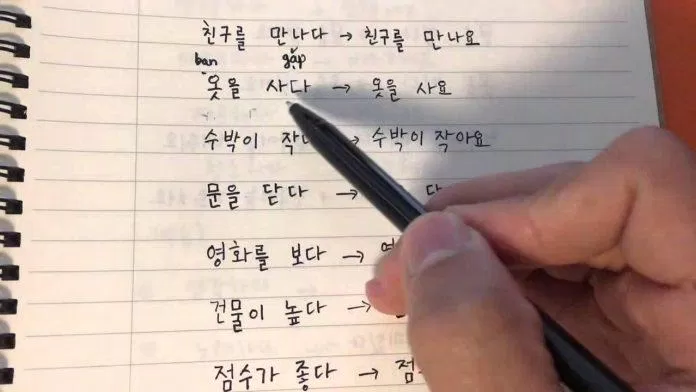 친구를 만나다 → 친구를 만나요
bạn gặp
옷을 사다 → 옷을 사요
수박이 → 수박이 작아요
문을 닫다 →
영화를 보다 →
건물이 높다 →
점수가 좋다 →